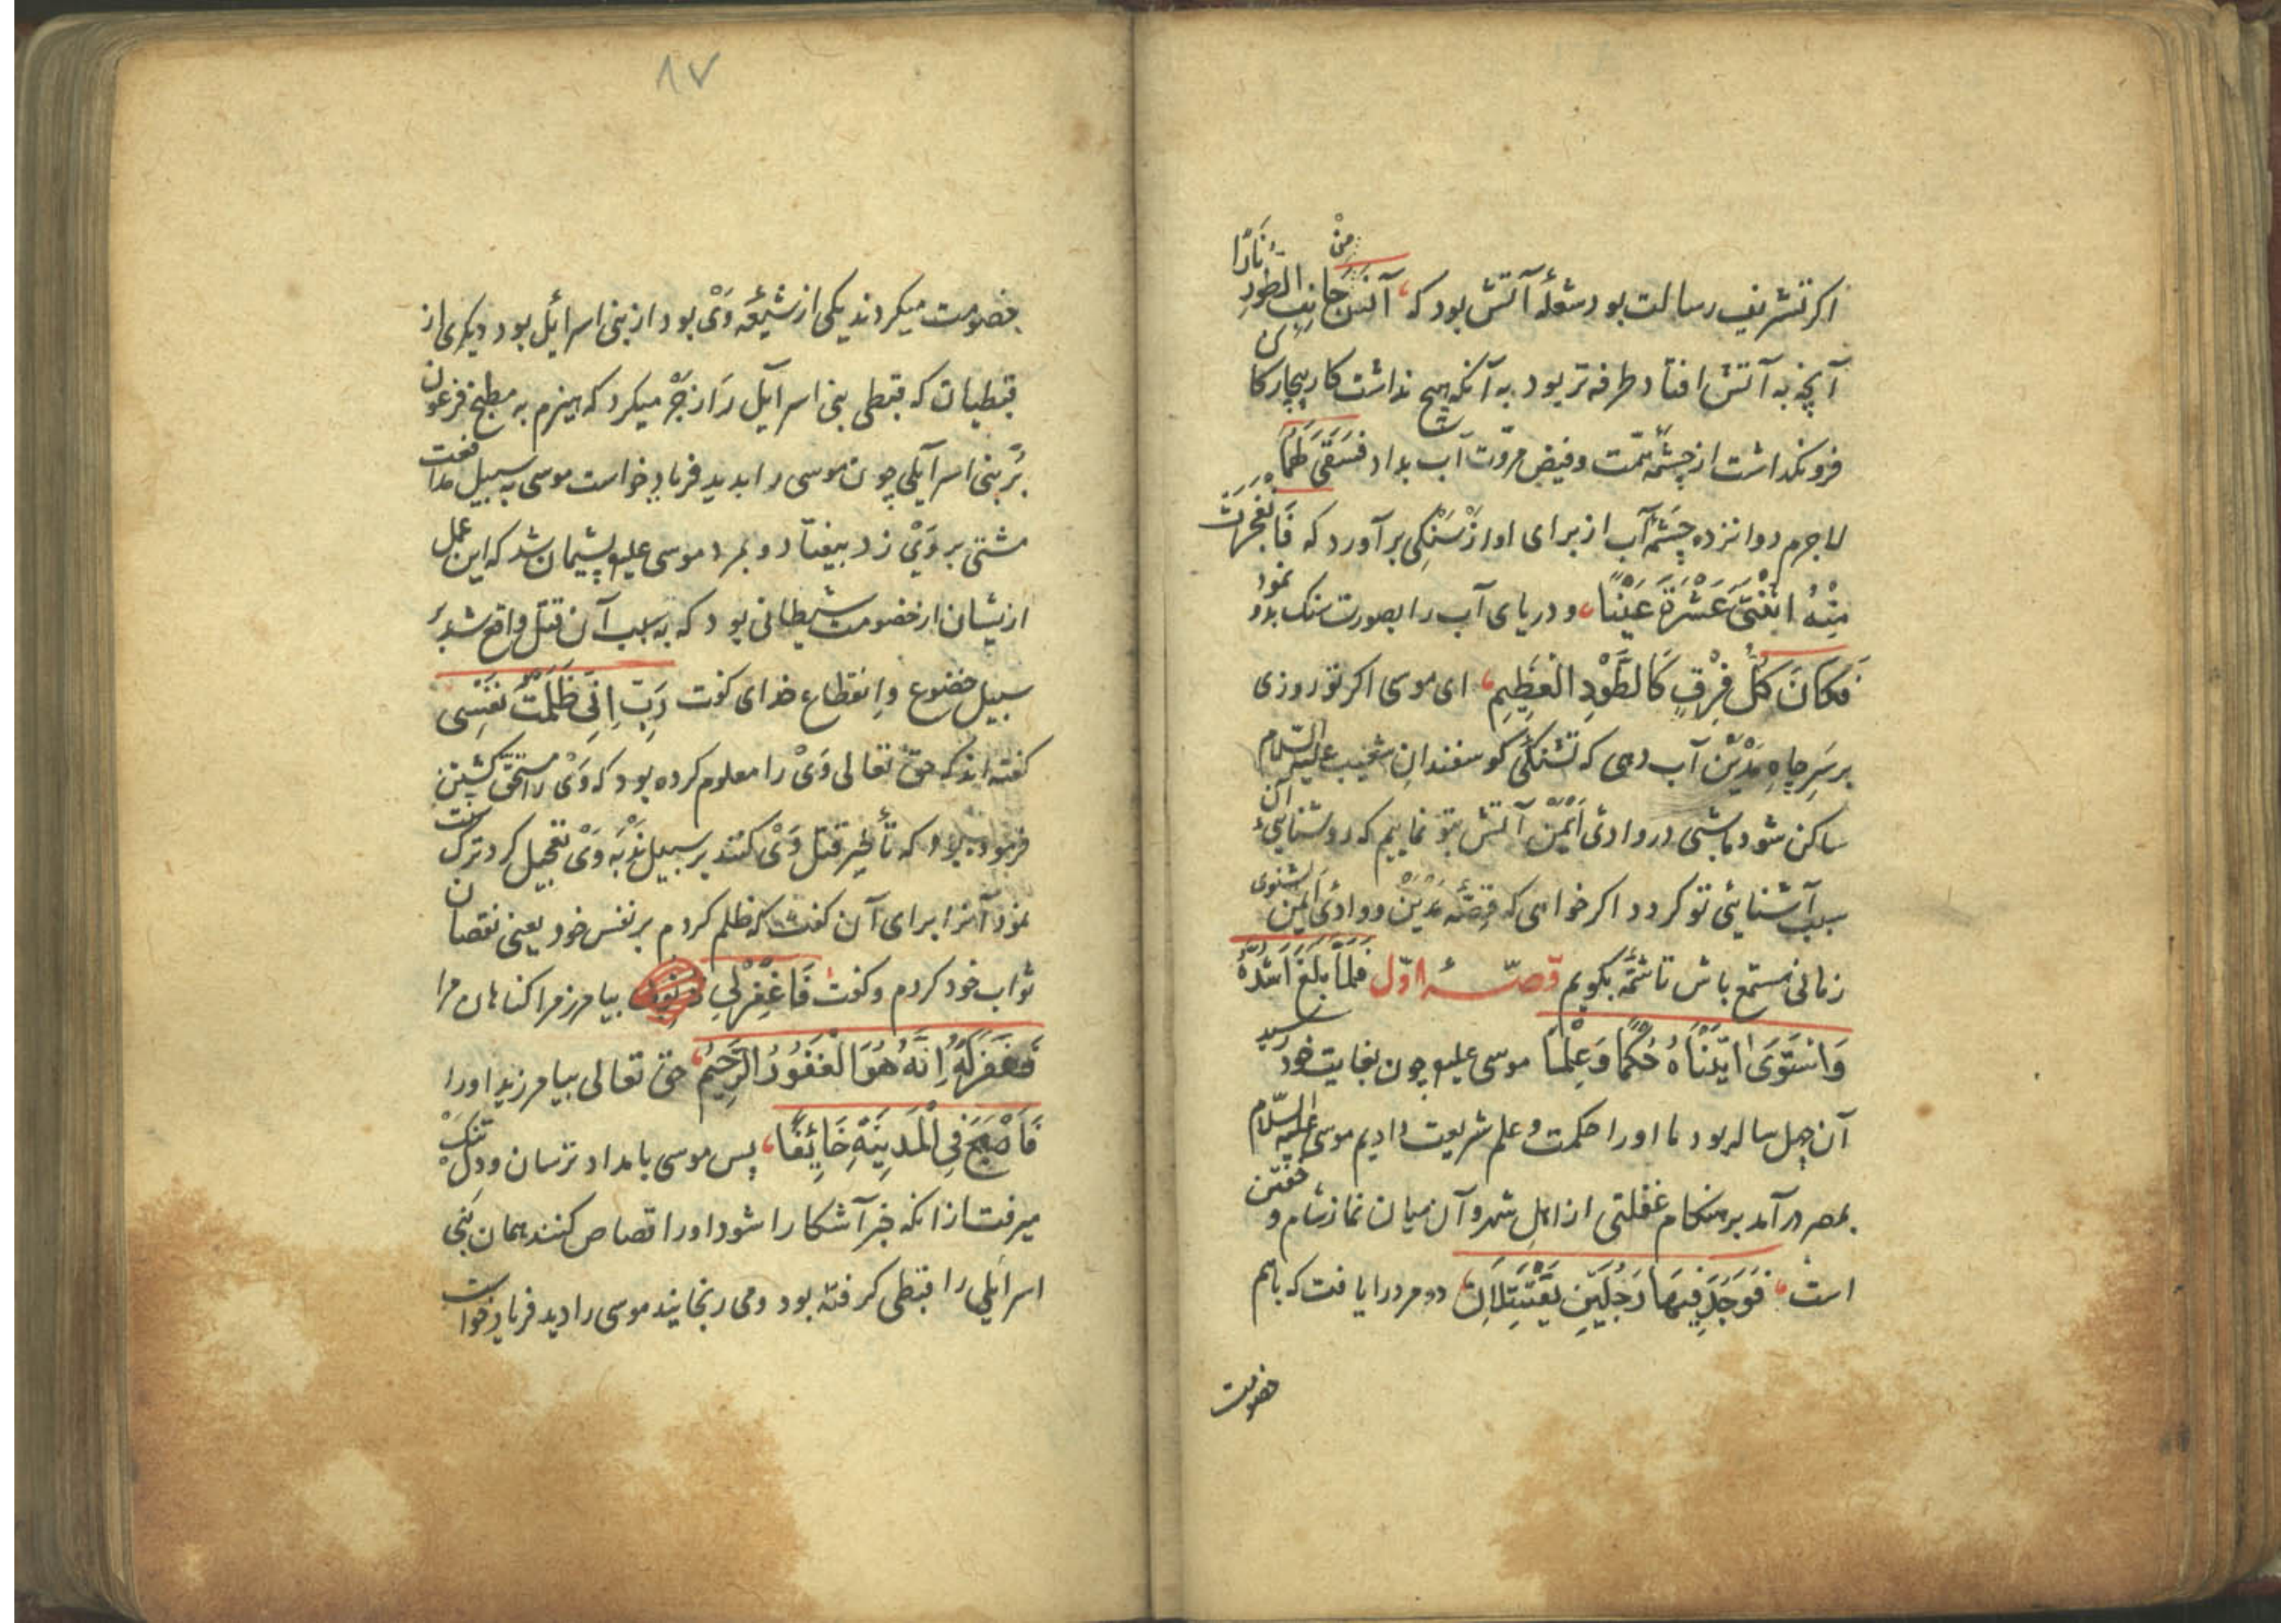 اکر تشریف رسالت بود شعلهٔ آتش بود که آنس من جانب الطور نارًا
آنچه به آتش افتاد طرفه تر بود به آنکه هیچ نداشت کار بیچارکان
فرونکذاشت از چشمهٔ همّت و فیض مروّت آب بداد فَسَقَى لَهُمَا
لاجرم دوانزده چشمهٔ آب از برای او از سنکی برآورد که فَانْفَجَرَتْ
مِنْهُ اثْنَتَيْ عَشْرَةَ عَيْنًا و دریای آب را بصورت سنک بدو نمود
فَكَانَ كُلُّ فِرْقٍ كَالطَّوْدِ الْعَظِيمِ ای موسی اکر تو روزی
بر سَرِ چاهِ مَدْیَن آب دهی که تشنکیٔ کوسفندانِ شعیب علیه السّلام
ساکن شود ما شبی در وادیٔ اَیْمَن آتش بتو نماییم که روشناییٔ آن
سبب آشنایئ تو کردد اکر خواهی که قصّهٔ مَدْیَن و وادیٔ اَیْمَن بشنوی
زمانی مستمع باش تا شمّهٔ بکویم قصّهٔ اوّل فَلَمَّا بَلَغَ اَشُدَّهُ
وَاسْتَوَى اٰتَيْنَاهُ حُكْمًا وَعِلْمًا موسی علیه چون بغایت خود رسید
آن چهل ساله بود ما اورا حکمت و علم شریعت دادیم موسی علیه السّلام
بمصر درآمد بر هنکام غفلتی از اهل شهر و آن میان نماز شام و خفتن
است فَوَجَدَ فِيهَا رَجُلَيْنِ يَقْتَتِلَانِ دو مرد را یافت که باهم
خصومت
۸۷
خصومت میکردند یکی از شیعهٔ وَیْ بود از بنی اسرائیل بود دیکری از
قبطیان که قبطی بنی اسرآئیل را زجر میکرد که هیزم به مطبخ فرعون
بَر بنی اسرآئیلی چون موسی را بدید فریاد خواست موسی به سبیل مدافعت
مشتی بر وَیْ زد بیفتاد و بمرد موسی علیه پشیمان شد که این عمل
ازیشان از خصومت شیطانی بود که به سبب آن قتل واقع شد بَر
سبیل خضوع و انقطاع خدای کفت رَبِّ اِنِّي ظَلَمْتُ نَفْسِي
کفته اند که حق تعالی وَیْ را معلوم کرده بود که وَیْ را مستحقّ کشتن
فرمود بود که تأخیر قتل وَیْ کنند بر سبیل نَدْبَه وَیْ تعجیل کرد ترک
نمود آنرا برای آن کفت که ظلم کردم بر نفس خود یعنی نقصان
ثواب خود کردم و کفت فَاغْفِرْ لِي بیامرز مرا کناهان مرا
فَغَفَرَ لَهُ اِنَّهُ هُوَ الْغَفُورُ الرَّحِيمُ حق تعالی بیامرزید اورا
فَاَصْبَحَ فِي الْمَدِينَةِ خَائِفًا پس موسی بامداد ترسان و دل تنک
میرفت از انکه خبر آشکارا شود اورا قصاص کنند همان بنی
اسرائیلی را قبطی کرفته بود و می رنجانید موسی را دید فریاد خواست